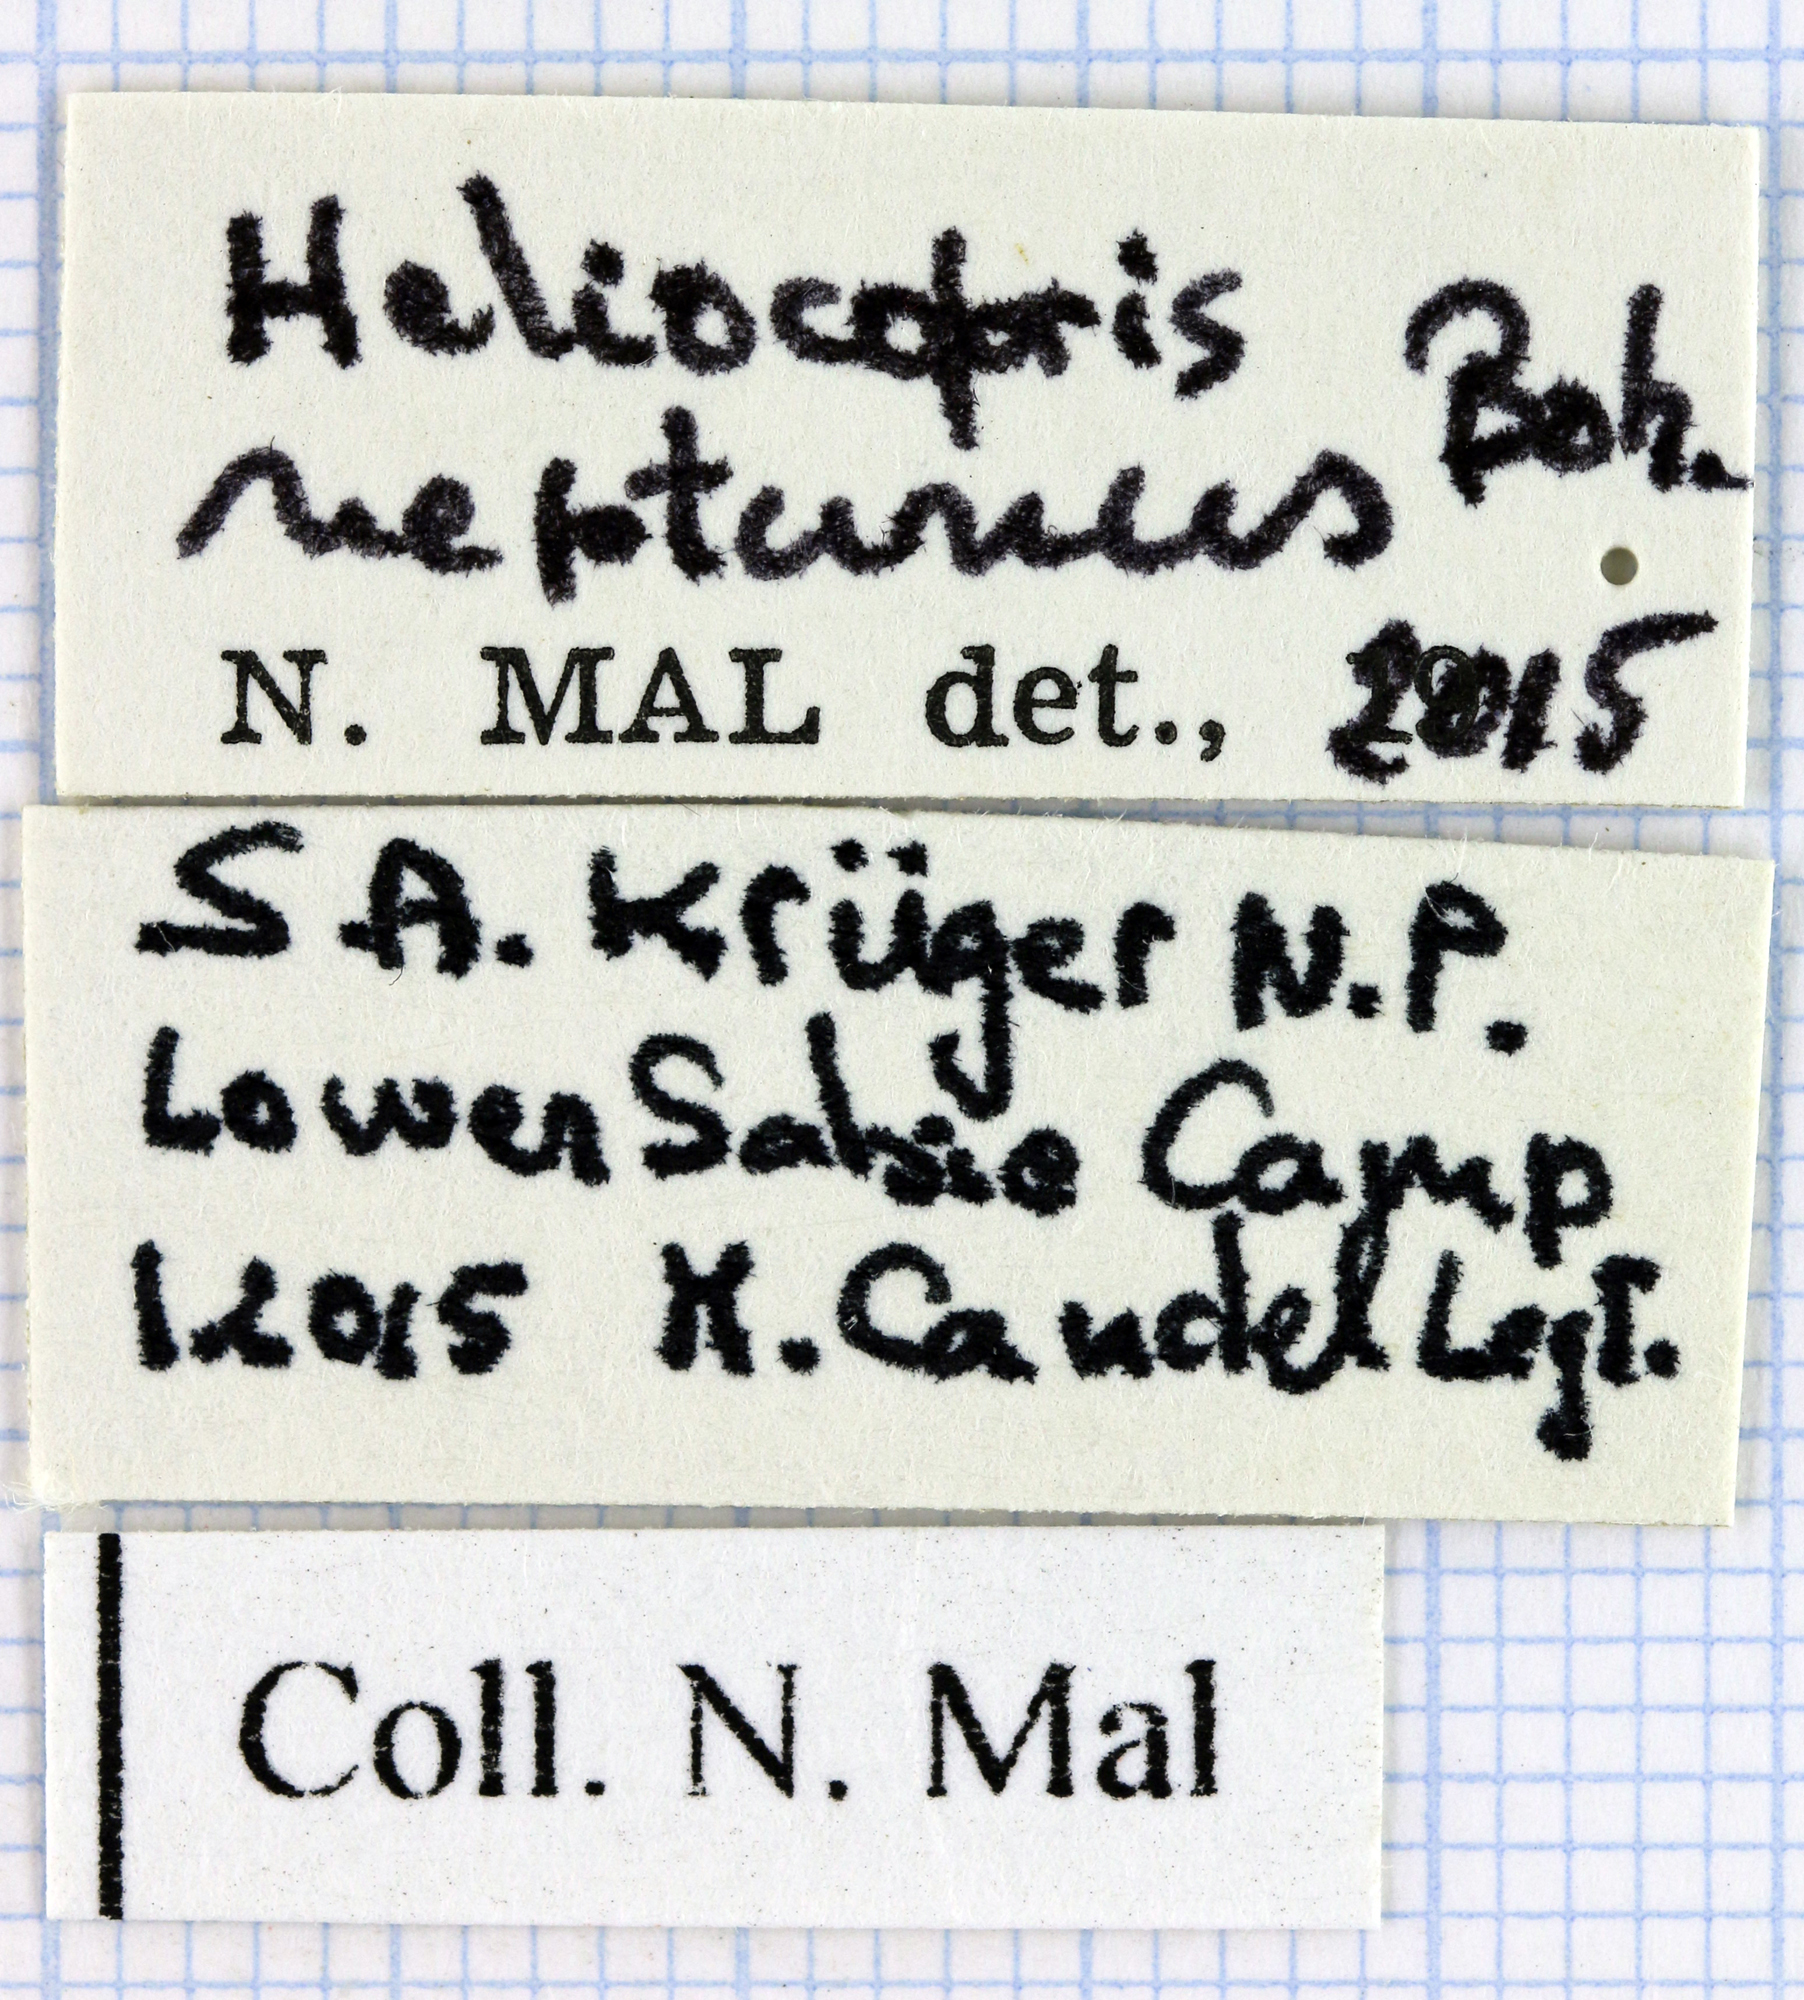 Heliocopris Boh.
neptunus
N. MAL det., 2015
S A. Krüger N.P.
Lower Sabie Camp
1.2015 H. Caudel Legt.
Coll. N. Mal